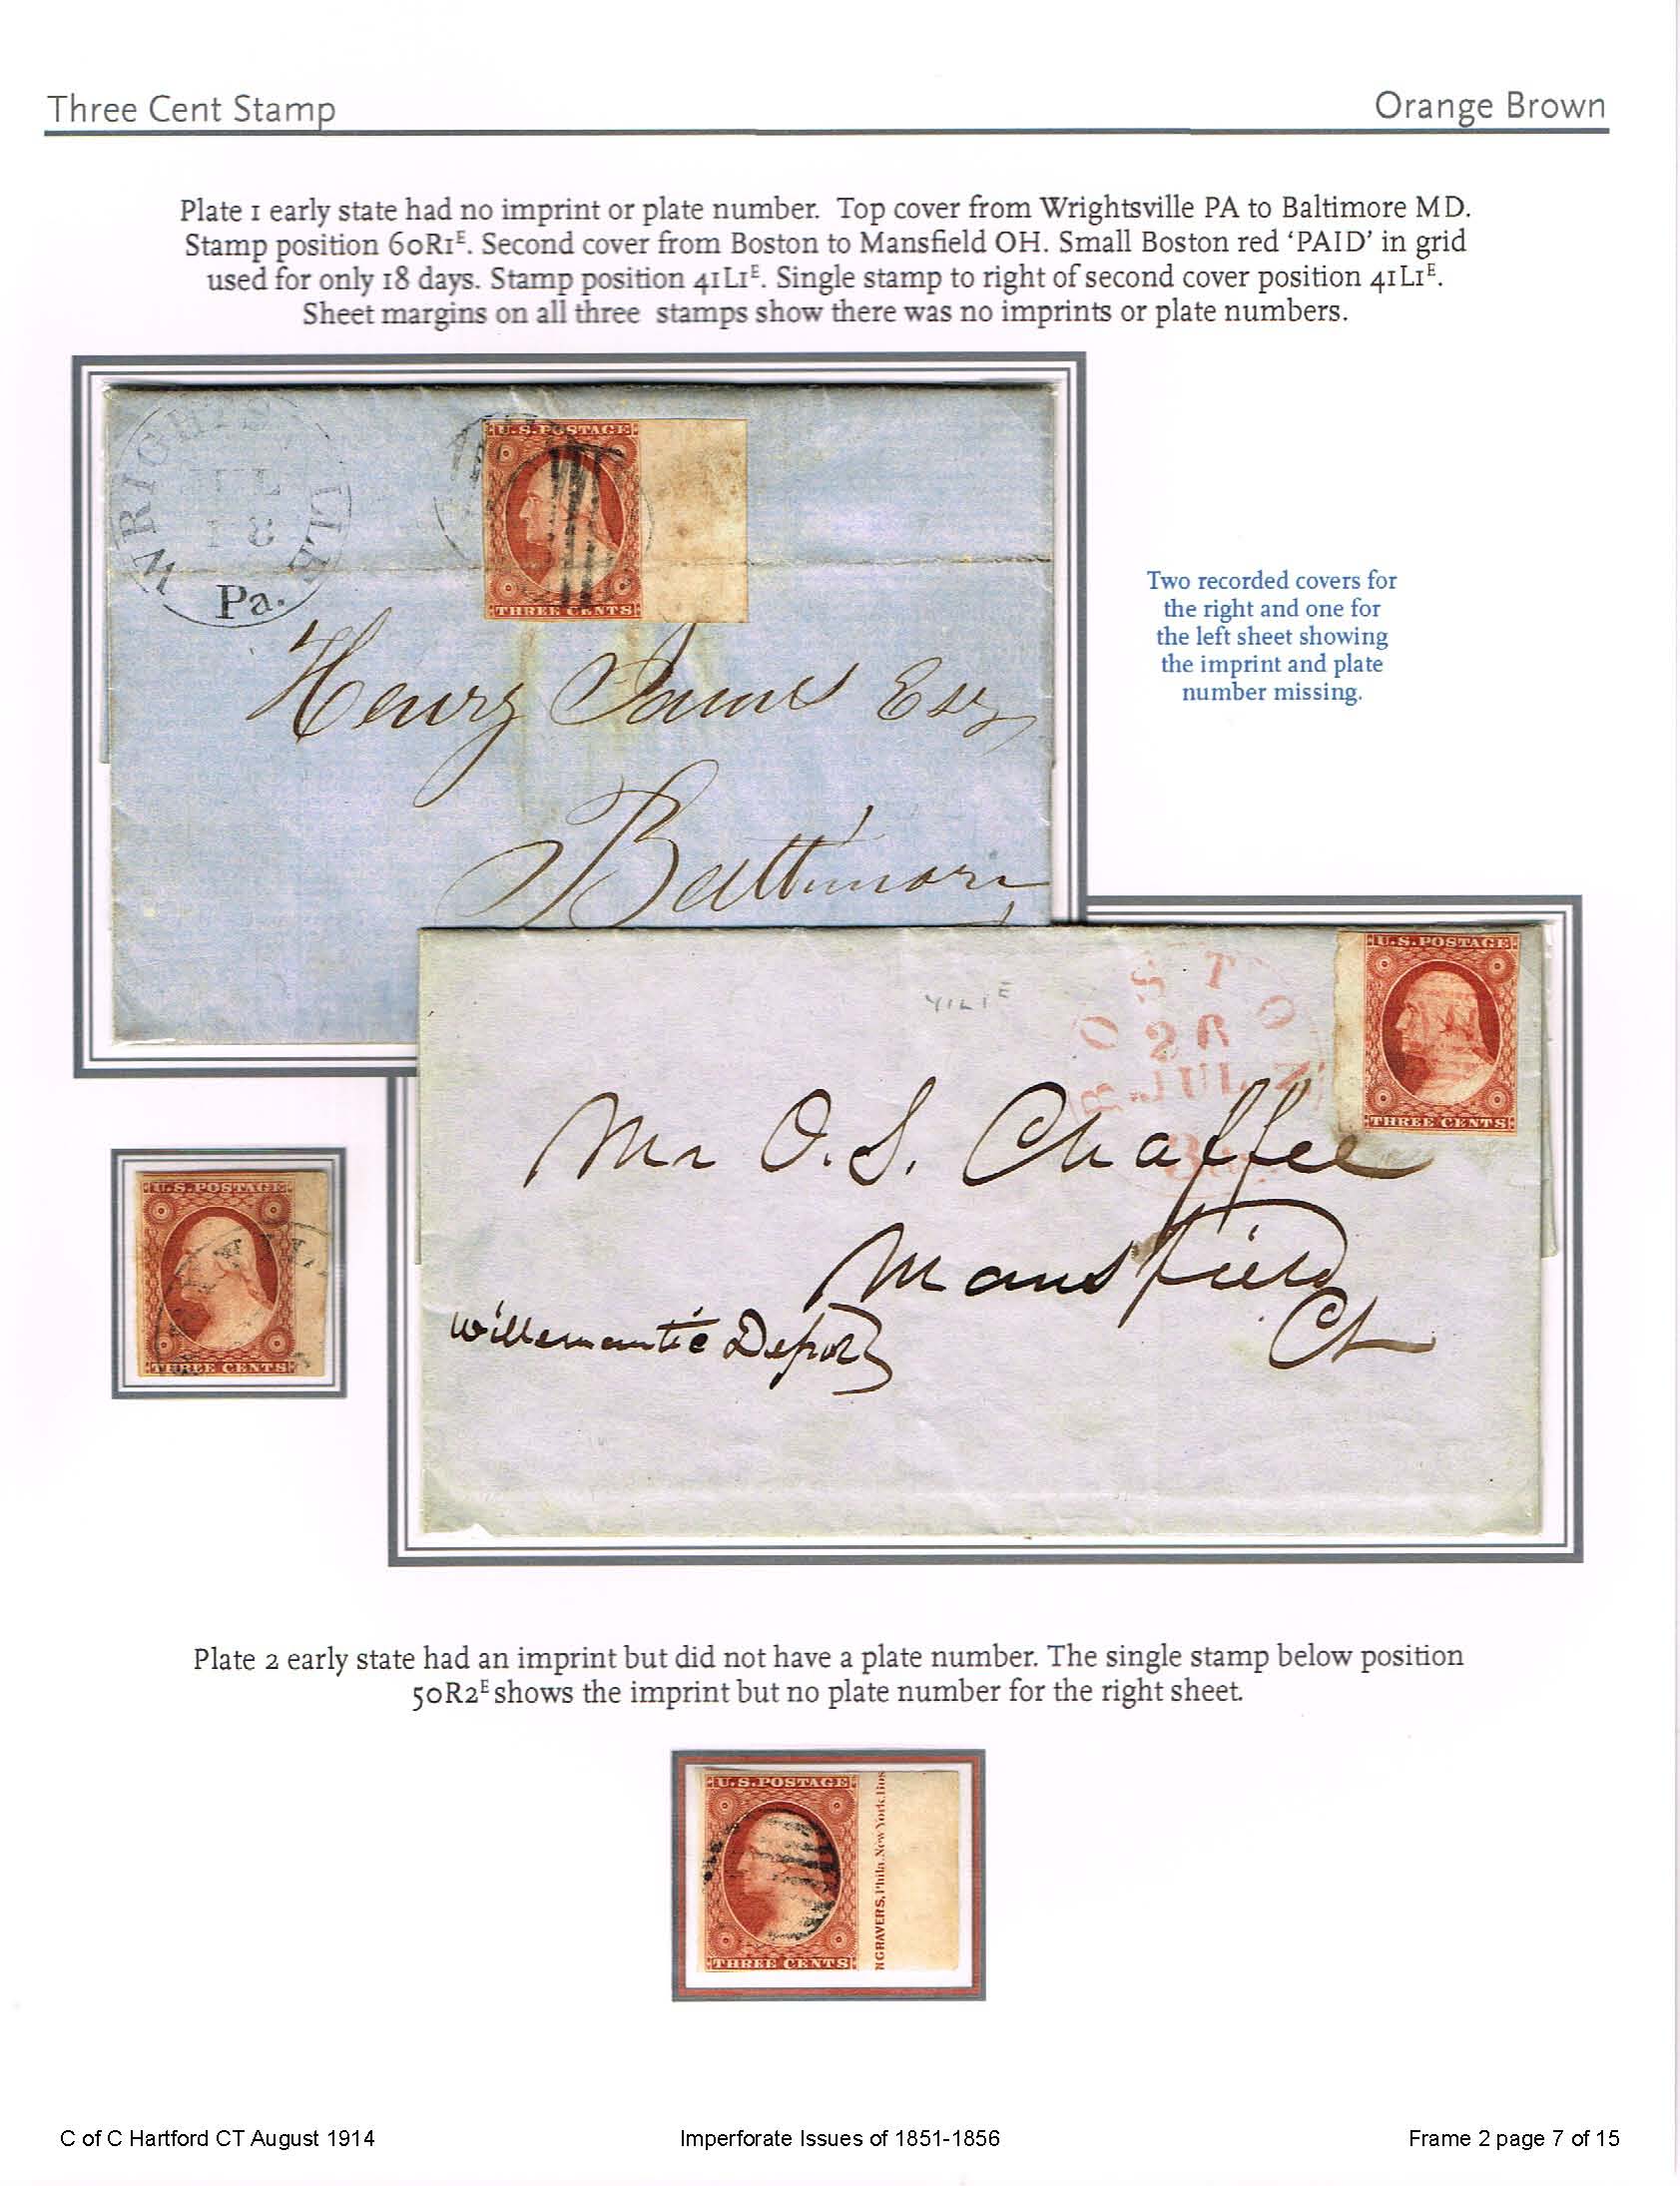 Three Cent Stamp
Orange Brown
Plate 1 early state had no imprint or plate number. Top cover from Wrightsville PA to Baltimore MD.
Stamp position 60R1ᴱ. Second cover from Boston to Mansfield OH. Small Boston red ‘PAID’ in grid
used for only 18 days. Stamp position 41L1ᴱ. Single stamp to right of second cover position 41L1ᴱ.
Sheet margins on all three stamps show there was no imprints or plate numbers.
WRIGHTS LLE
JUL
18
Pa.
U.S. POSTAGE
THREE CENTS
Henry James Esq
Baltimore
Two recorded covers for
the right and one for
the left sheet showing
the imprint and plate
number missing.
41L1ᴱ
BOSTON
2R
JUL
U.S. POSTAGE
THREE CENTS
Mr O. S. Chaffee
Mansfield
Willemantic Depot
Ct
U.S. POSTAGE
THREE CENTS
Plate 2 early state had an imprint but did not have a plate number. The single stamp below position
50R2ᴱ shows the imprint but no plate number for the right sheet.
U.S. POSTAGE
THREE CENTS
NGRAVERS, Phila. New York, Bos
C of C Hartford CT August 1914
Imperforate Issues of 1851-1856
Frame 2 page 7 of 15